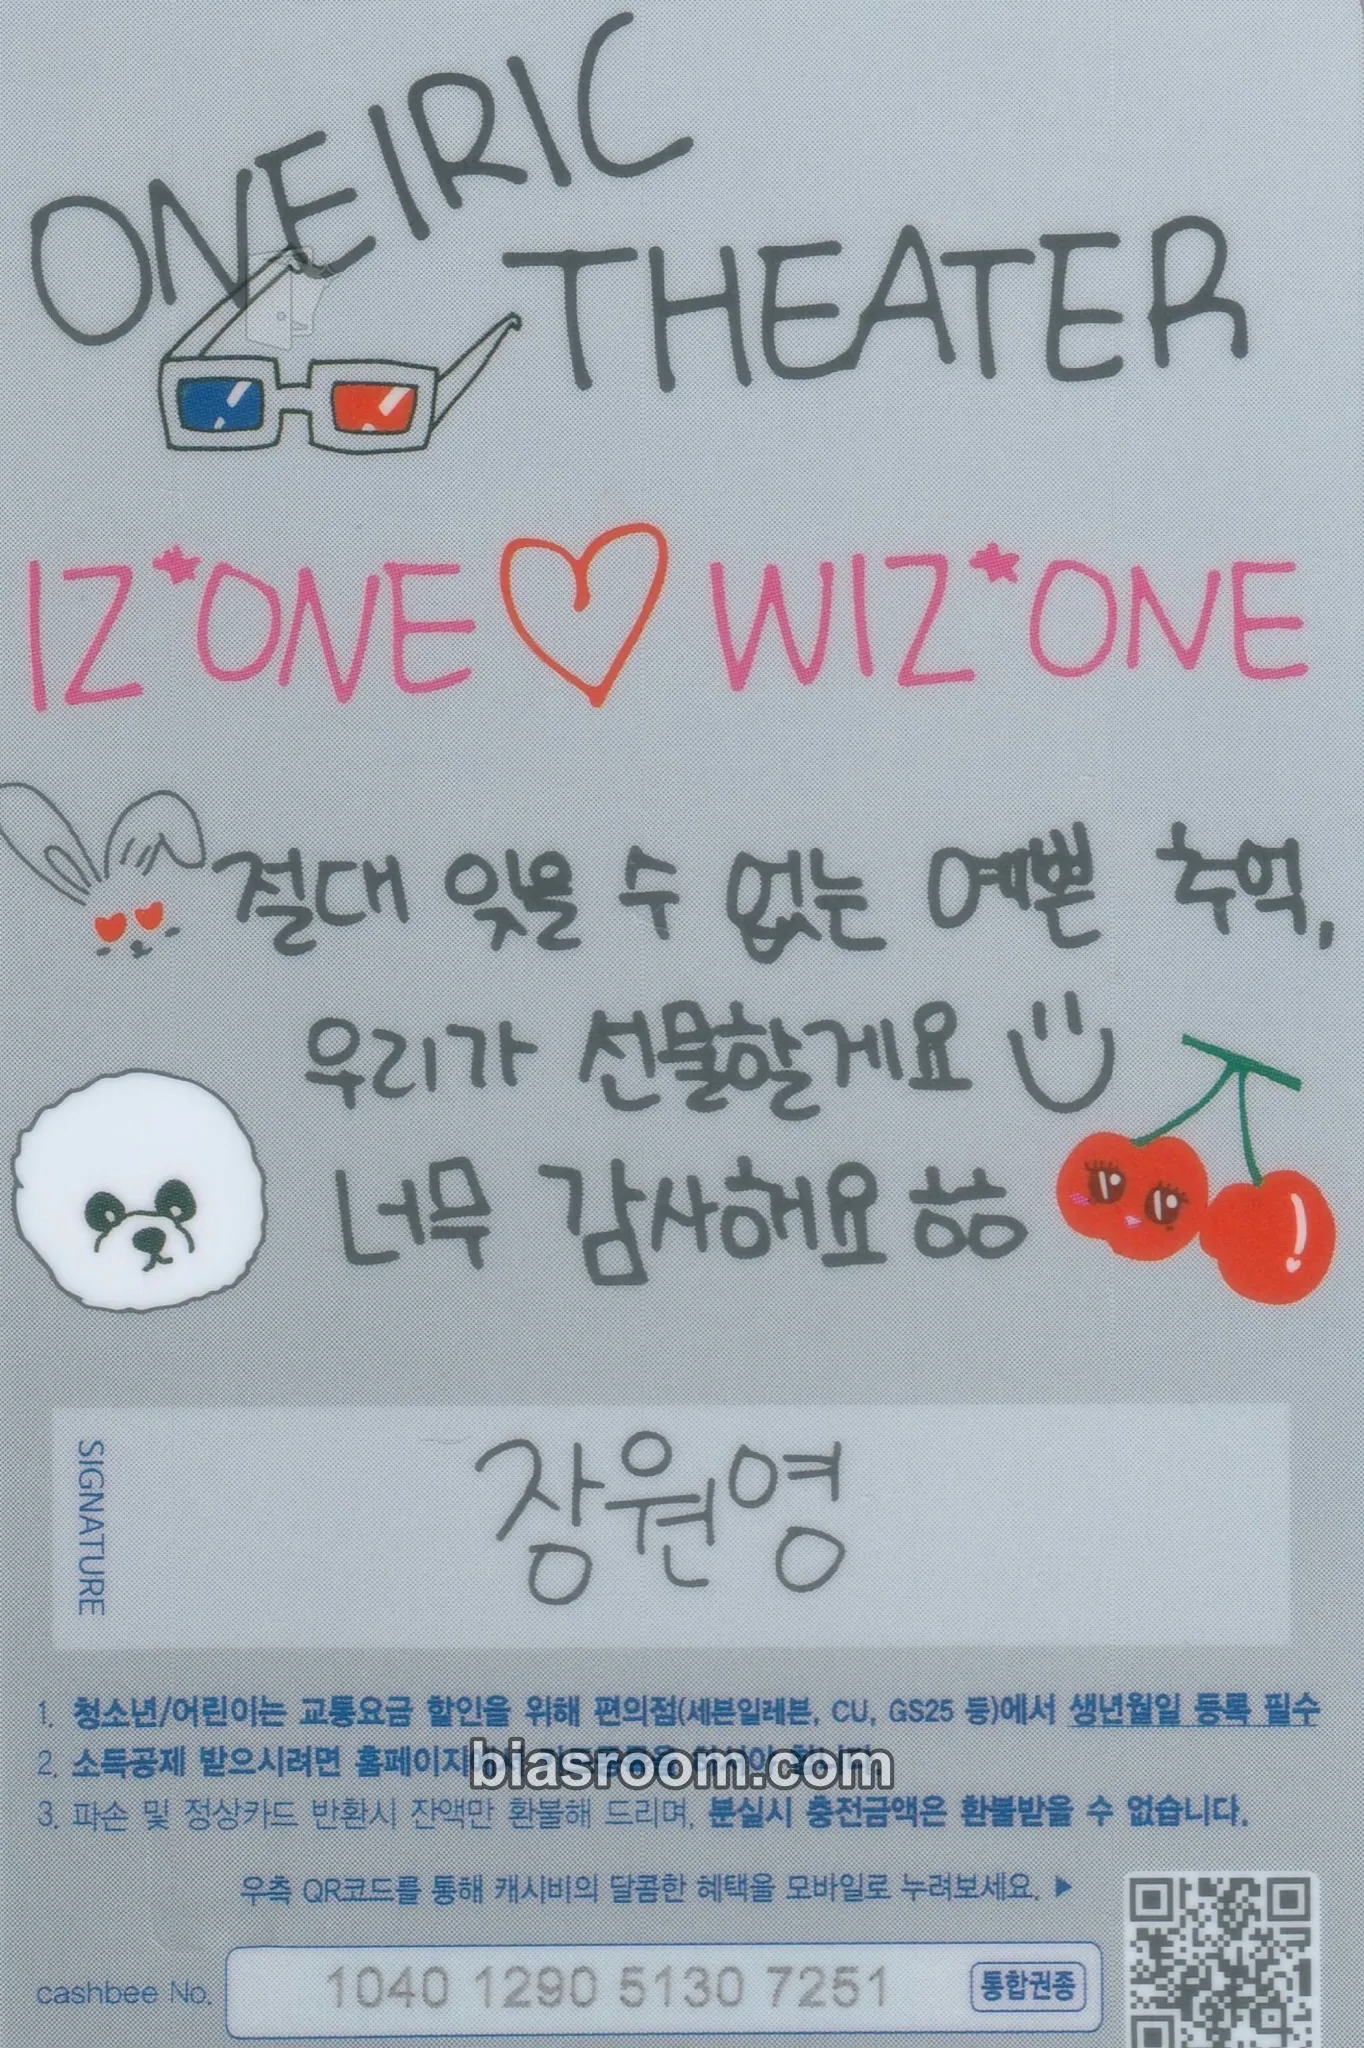 ONEIRIC
THEATER
IZ*ONE♡WIZ*ONE
절대 잊을 수 없는 예쁜 추억,
우리가 선물할게요
너무 감사해요 항
SIGNATURE
장원영
1. 청소년/어린이는 교통요금 할인을 위해 편의점(세븐일레븐, CU, GS25 등)에서 생년월일 등록 필수
2. 소득공제 받으시려면 홈페이지
biasroom.com
3. 파손 및 정상카드 반환시 잔액만 환불해 드리며, 분실시 충전금액은 환불받을 수 없습니다.
우측 QR코드를 통해 캐시비의 달콤한 혜택을 모바일로 누려보세요. ▶
cashbee No. 1040 1290 5130 7251 통합권종